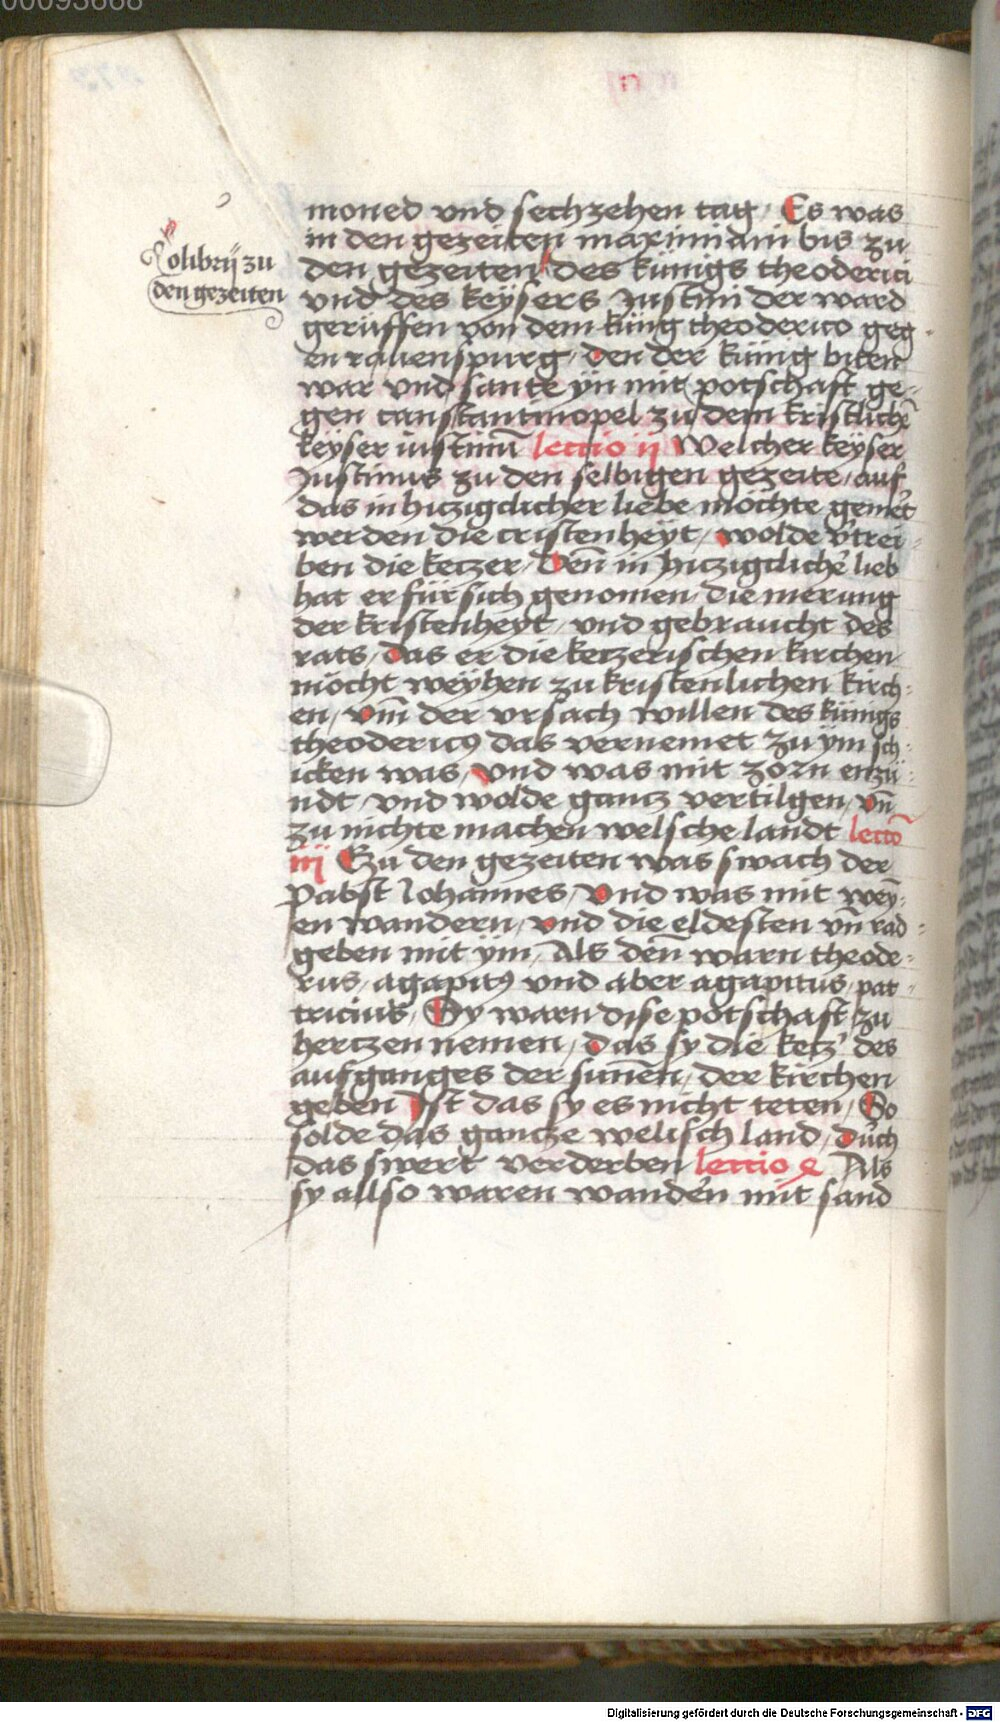 00093668
moned vnd sechzehen tag / Es was
in den gezeiten maximiani bis zu
den gezeiten / des künigs theoderici
vnd des keÿsers Justini der ward
gerüffen von dem küng theoderico geg
en rauenspurg / den der künig biten
war vnd sante ÿn mit potschaft ge-
gen canstantinopel zu dem kristlichē
keÿser iustinū lectio ij Welcher keÿser
Justinus zu den selbigen gezeite / auf
das in hiczigclicher liebe möchte gemert
werden die cristenheÿt / wolde v'trei-
ben die keczer / Deñ in hiczigclich' lieb
hat er für sich genomen / die merung
der kristenheÿt / vnd gebraucht des
rats / das er die keczerischen kirchen
möcht weÿhen zu kristenlichen kirch-
en / vm̄ der vrsach willen des künigs
theodericꝰ das vernemet zu ÿm sch-
icken was / vnd was mit zorn enzü-
ndt / vnd wolde gancz vertilgen / vn̄
zu nichte machen welsche landt lectō
iij Zu den gezeiten was swach der
Pabst Johannes / Vnd was mit weÿ-
en wandern / vnd die eldesten vn̄ rad-
geben mit ÿm / Als deñ warn theode-
rus / agapitꝰ vnd aber agapitus / pat-
tricius / Sy warn dise potschaft zu
hertzen nemen / das sy die ketz' des
aufganges der suñen / der kirchen
geben Ist das sy es nicht teten / So
solde das gantze welisch land / durch
das swert verderben lectio Als
sy allso waren wandern mit sand
olibrij zu
den gezeiten
Digitalisierung gefördert durch die Deutsche Forschungsgemeinschaft - DFG